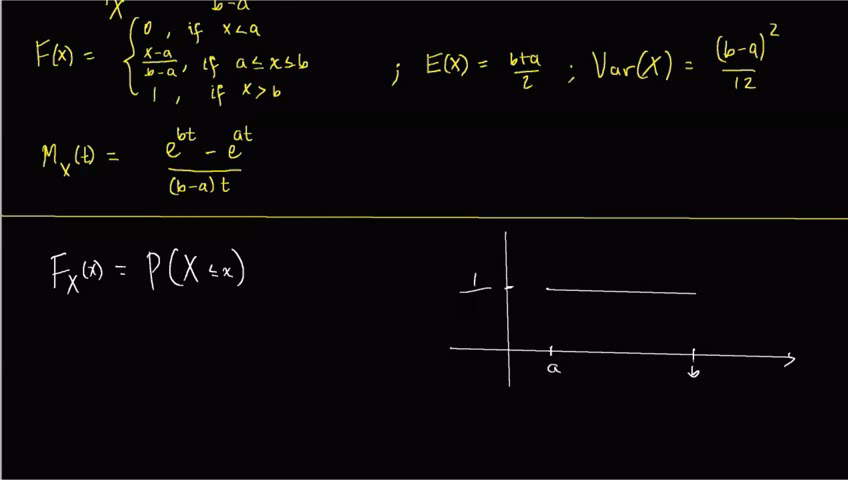 X b-a
F(x) = { 0, if x<a
x-a/b-a, if a≤x≤b
1, if x>b
; E(X) = b+a/2 ; Var(X) = (b-a)²/12
M_X(t) = e^bt - e^at / (b-a)t
F_X(x) = P(X ≤ x)
1
a b